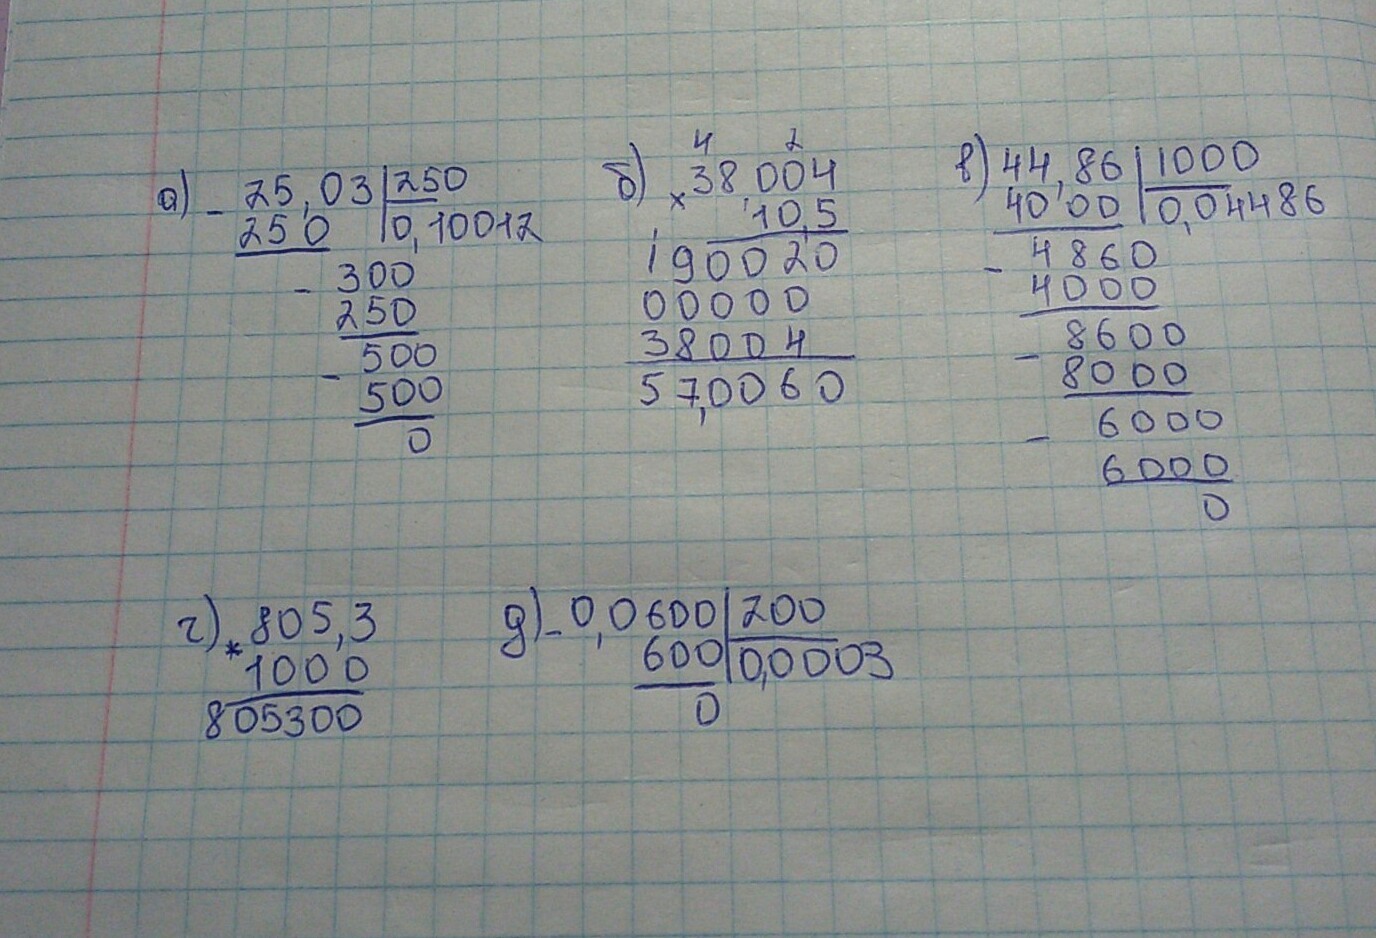 а) - 25,03 | 250
250 | 0,10012
- 300
250
- 500
500
0
б) 4 2
× 38004
10,5
190020
00000
38004
57,0060
в) 44,86 | 1000
4000 | 0,04486
- 4860
4000
- 8600
8000
- 6000
6000
0
г) * 805,3
1000
805300
д) - 0,0600 | 200
600 | 0,0003
0